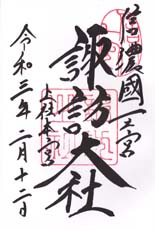 信濃國一之宮
諏訪大社
上社本宮
令和三年二月十二日